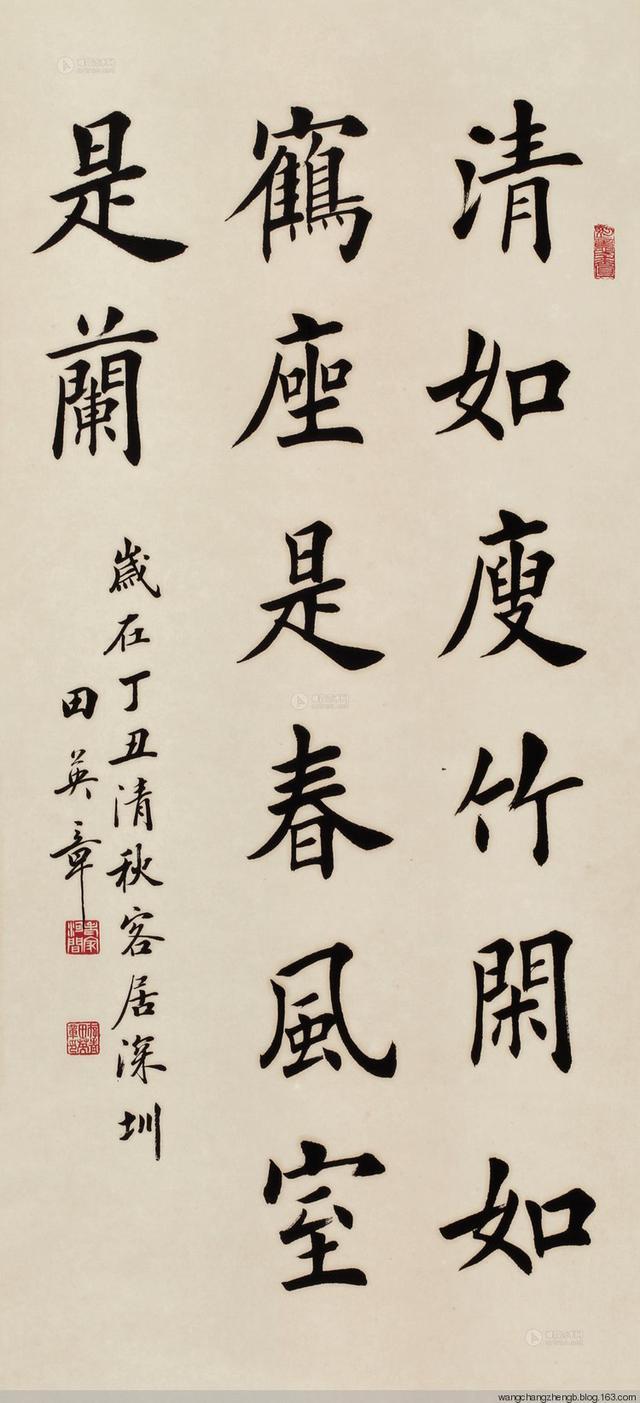 清如瘦竹閑如
鶴座是春風室
是蘭
歲在丁丑清秋客居深圳
田英章
wangchangzhengb.blog.163.com